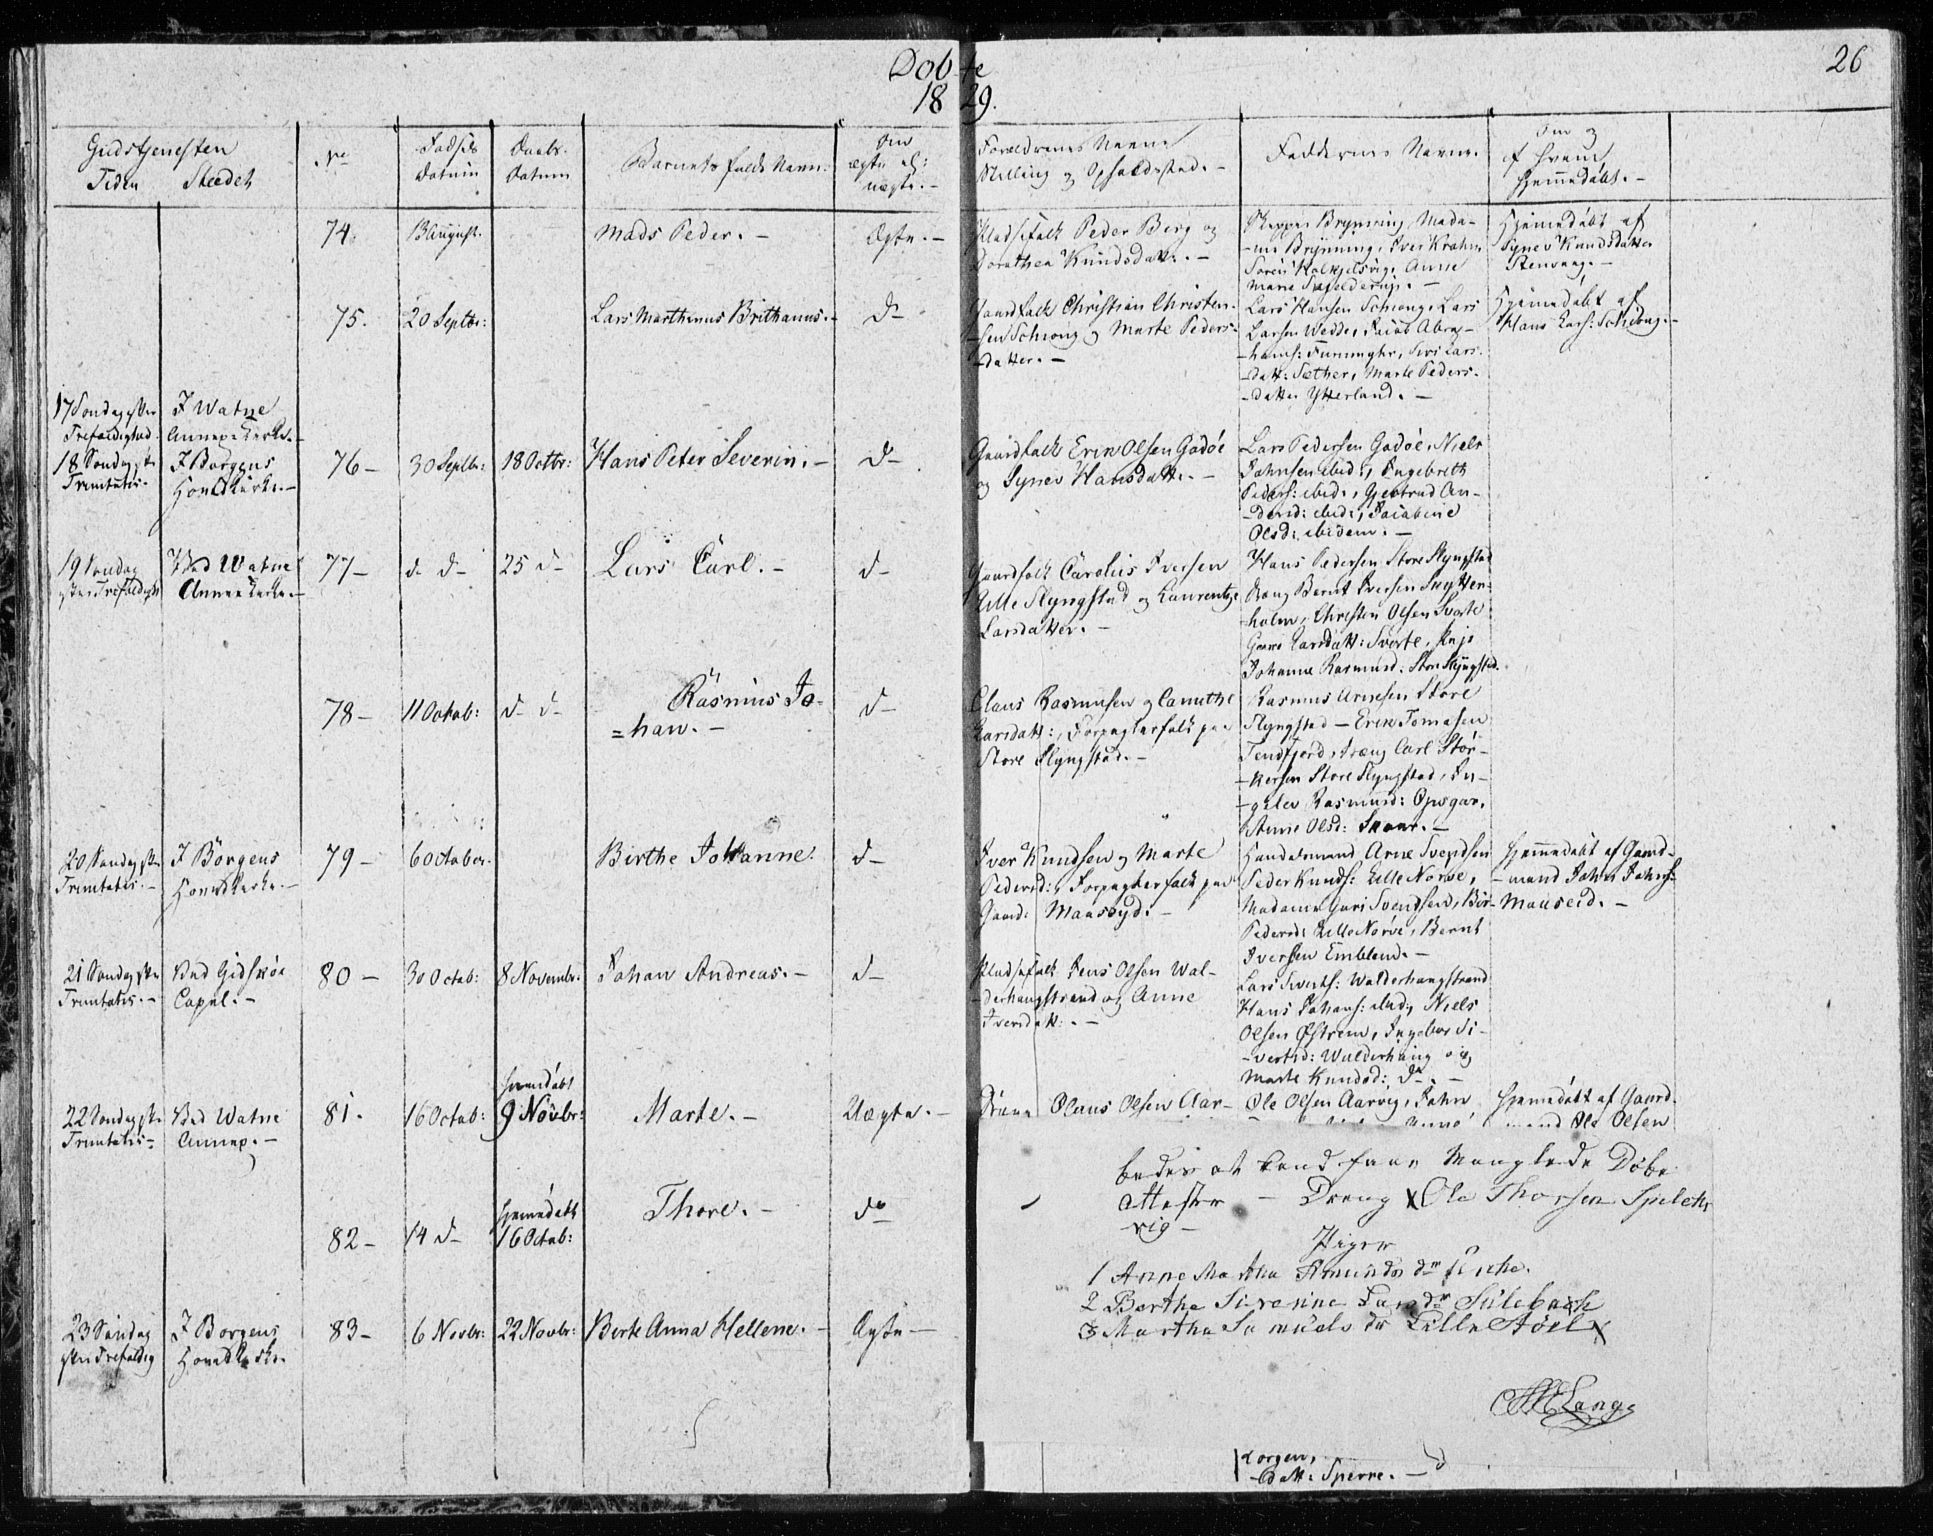 Døbte
1829.
26
Gudstjenesten
Tiden Stedet
No
Fødsels
Datum
Daabs-
Datum
Barnets fulde Navn.
Om
ægte el:
uægte.-
Forældrenes Navne
Stilling og Opholdssted.-
Faddernes Navne.
Om og
af hvem
hjemmedøbt.-
74. August. Mads Peder.- Ægte.-
Pladsfolk Peder Berg og
Dorothea Knudsdatt:.-
Skipper Brynning, Mada-
-me Brynning, Iver Krohn
Søren Anne
Marie
Hjemmedøbt af
Synev Knudsdatter
Steuvaag.-
75. 20 Septbr: Lars Marthinus Brithanus.- do-
Gaardfolk Christian Christen-
-sen Schiong og Marte Peders-
-datter.-
Lars Hansen Schiong, Lars
Larsen Wedde, Jacob Abra-
-hams: Siri Lars-
-datt: Sæther, Marte Peders-
-datter Ytterland.-
Hjemmedøbt af
Hans Lars: Schiong.-
17 Søndag efter
Trefoldighed.
I Watne
Annex Kirke.-
18 Søndag efter
Trinitatis-
I Borgens
Hovedkirke.-
76- 30 Septbr: 18 Octbr: Hans Peter Severin.- do-
Gaardfolk Erik Olsen Godøe
og Synev Hansdatt:.-
Lars Pedersen Godøe, Niels
Johnsen ibid:, Ingebreth
Peders: ibid:, Gertrud An-
-dersd: ibid:, Jacobine
Olsd: ibidem.-
19 Søndag
efter Trefoldigh
Ved Watne
Annex Kirke.-
77- do do- 25 do- Lars Carl.- do-
Gaardfolk Carolus Iversen
Lille Slyngstad og Laurentze
Larsdatter.-
Hans Pedersen Store Slyngstad
Dreng Bernt Iversen Snytten-
-holm, Christen Olsen Svorte
Larsdatt: Svorte, Pige
Johanne Rasmusd: Store Slyngstad.
78- 11 Octob: do- do- Rasmus Jo-
=han.- do-
Claus Rasmusen og Canuthe
Larsdatt:, Forpagterfolk paa
Store Slyngstad.-
Rasmus Arnesen Store
Slyngstad - Erik Tomasen
Tennfjord, dreng Carl Stor-
-kersen Store Slyngstad, In-
-gelev Rasmusd: Opsgar,
Anne Olsd: Skaar.-
20 Søndag efter
Trinitatis.-
I Borgens
Hovedkirke.-
79- 6 October. Birthe Johanne. do-
Iver Knudsen og Marte
Pedersd:, Forpagterfolk paa
Gaard: Maaseyd.-
Handelsmand Arne Svendsen
Peder Knuds: Lille Norve,
Madame Guri Svendsen, Bir-
Pedersd: Lille Norve, Bernt
Iversen Emblem.-
Hjemmedøbt af Gaard-
-mand John Johns:
Mauseid.-
21 Søndag efter
Trinitatis.-
Ved Gidskøe
Capel.-
80- 30 Octob: 8 Novembr. Johan Andreas.- do-
Pladsfolk Jens Olsen Wal-
-derhaugstrand og Anne
Iversdatt:.-
Lars Siverts: Walderhaugstrand
Hans Johans: ibid:, Niels
Olsen Østrem, Ingebor Si-
-vertsd: Walderhaug og
Marte Knudsd: do.-
22 Søndag efter
Trinitatis-
Ved Watne
Annex.-
81. 16 Octob: hjemdøbt
9 Novbr: Marte.- Uægte.-
Dreng Olaus Olsen Aar-
Ole Olsen Aarvig, John
Hjemmedøbt af Gaard-
-mand Ole Olsen
82- 14 do- hjemmedøbt
16 Octob: Thore.- do
23 Søndag
efter Trefoldig
I Borgens
Hovedkirke.
83- 6 Novbr: 22 Novbr: Berte Anna Hellene.- Ægte-
bedes at kand faae Manglede Døbe
Attester - Dreng X Ole Thorsen Spilch
vig-
Piger
1 Anne Martha Amunds dr
2 Berthe Sirenne dr Sulebach
3 Martha Samuels dr Lille Støel X
Lange
Korgen,
-datt: Sperre.-